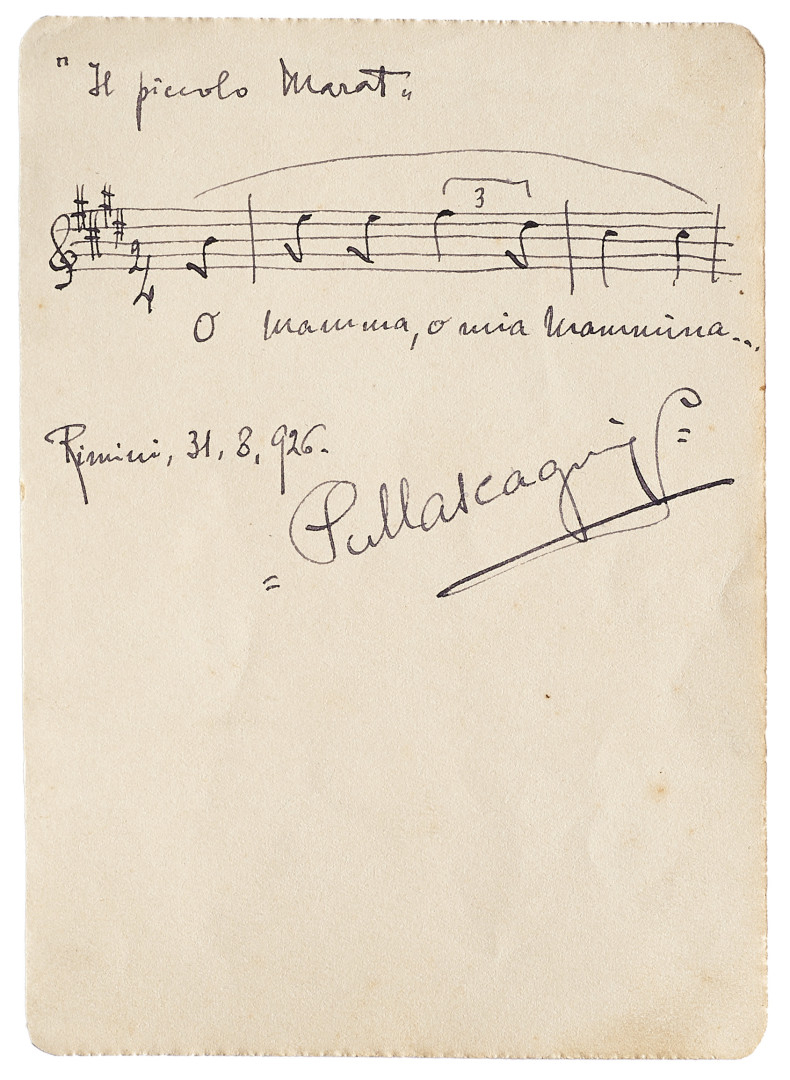 " Il piccolo Marat "
2
4
3
O Mamma, o mia Mammina...
Rimini, 31, 8, 926.
= PMascagni =